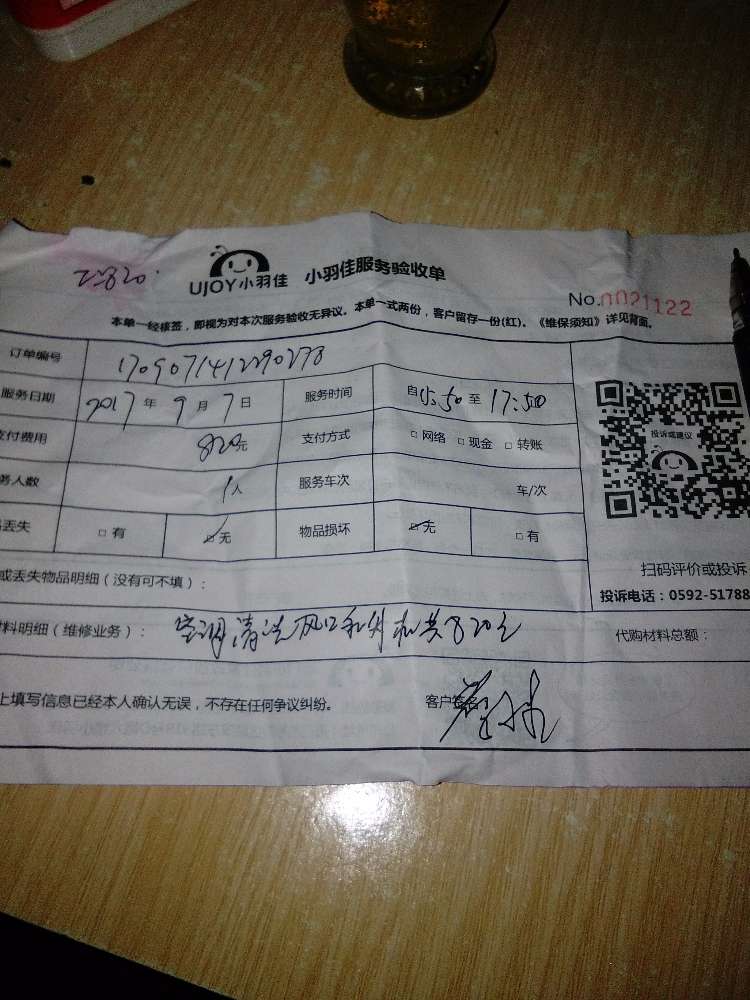 UJOY小羽佳 小羽佳服务验收单
No.0021122
本单一经核签，即视为对本次服务验收无异议。本单一式两份，客户留存一份(红)。《维保须知》详见背面。
订单编号 170907141229027
服务日期 2017年9月7日 服务时间 自15:50至17:50
支付费用 820元 支付方式 □网络 □现金 □转账
务人数 1人 服务车次 车/次
丢失 □有 ☑无 物品损坏 ☑无 □有
投诉或建议
扫码评价或投诉
或丢失物品明细（没有可不填）：
投诉电话：0592-51788
料明细（维修业务）： 空调清洗风口和外机共820元
代购材料总额：
上填写信息已经本人确认无误，不存在任何争议纠纷。 客户签名